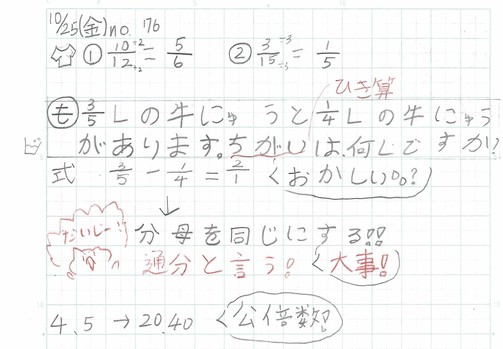 10/25(金)no. 176
① 10÷2/12÷2 = 5/6 ② 3÷3/15÷3 = 1/5
ひき算
も 3/5Lの牛にゅうと1/4Lの牛にゅう
があります。ちがいは、何Lですか?
式 3/5 - 1/4 = 2/1 おかしい。。?
↓
分母を同じにする!!
通分と言う! 大事!
4.5 → 20.40 公倍数!